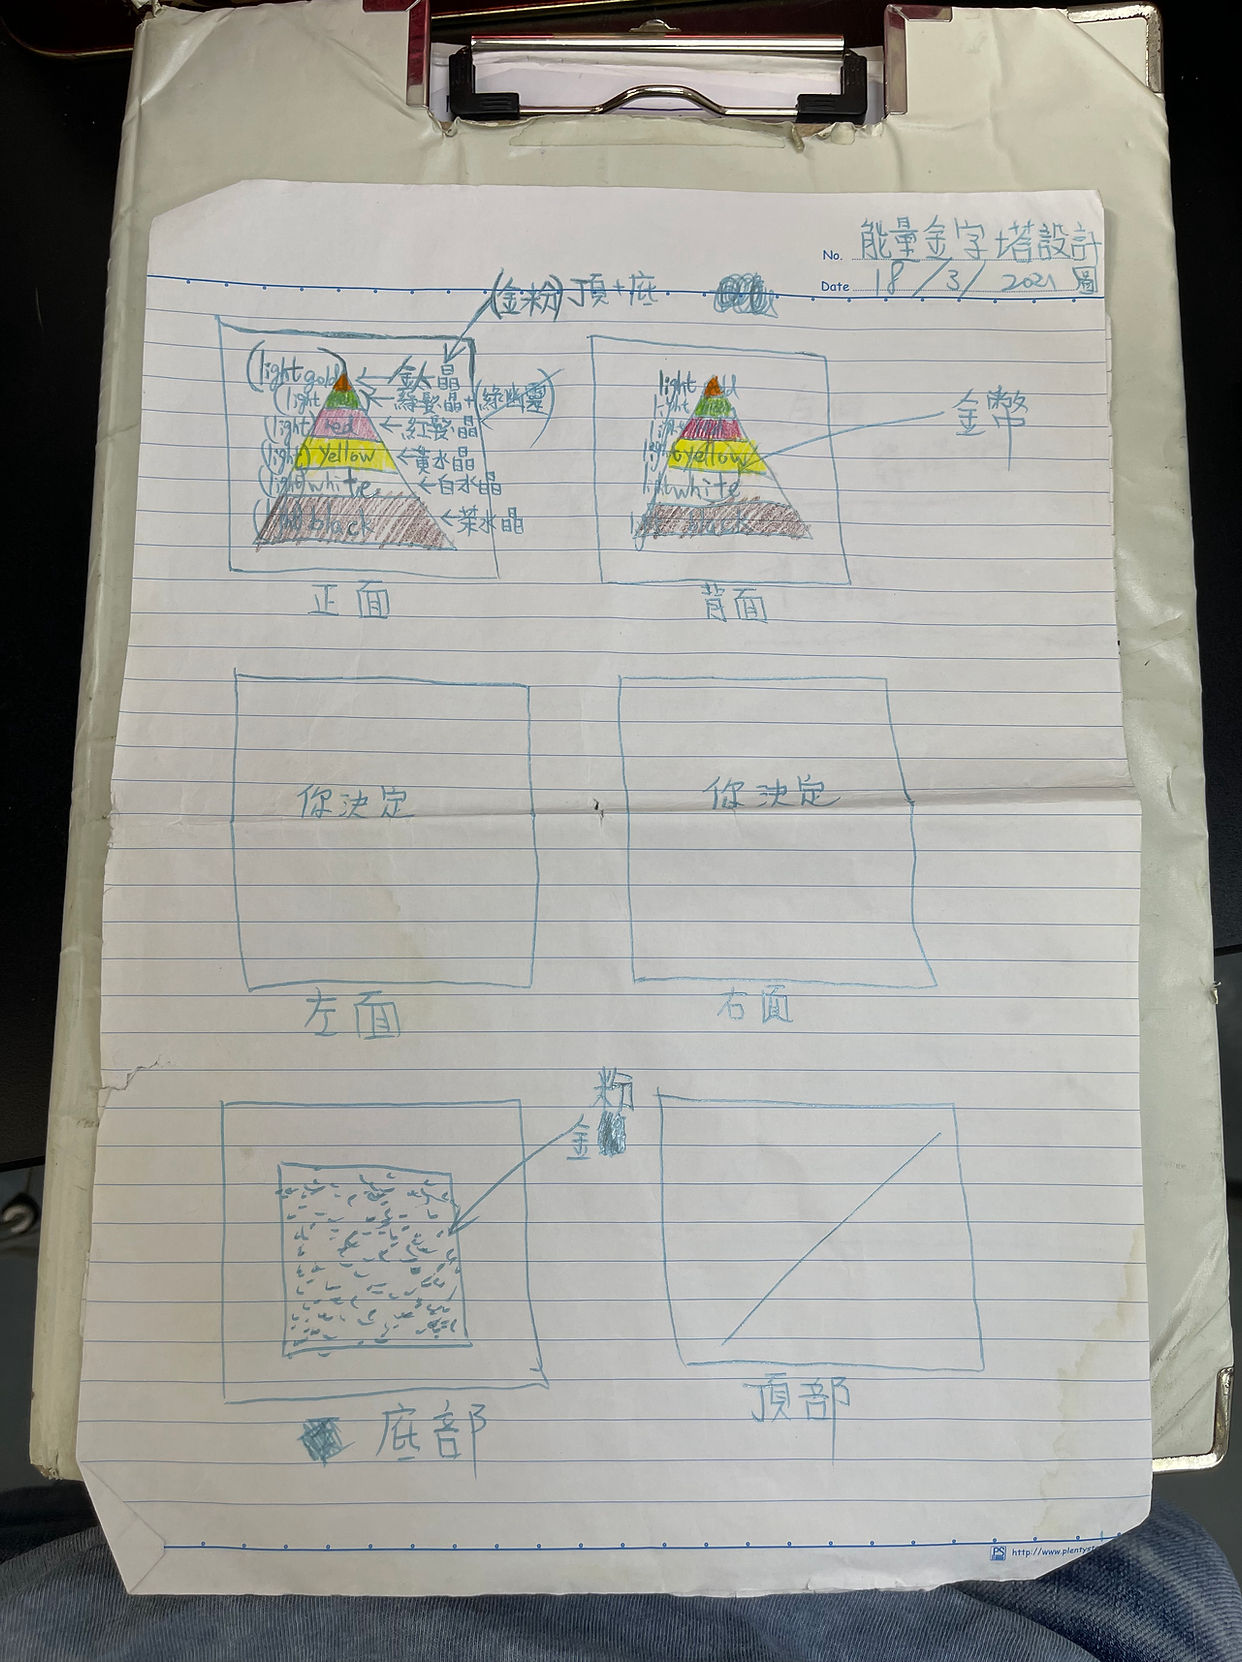 No. 能量金字塔設計
Date 18/3/2021 圖
(金粉)頂+底
(light gold) ←鈦晶
(light ←綠髮晶+(綠幽靈)
(light) red ←紅髮晶
(light) yellow ←黃水晶
(light) white ←白水晶
(light) black ←茶水晶
正面
light
light
light
light yellow
light white
light black
金幣
背面
你決定
左面
你決定
右面
金粉
底部
頂部
http://www.plentyst